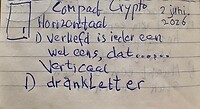 Compact Crypto
2 juni 2026
Horizontaal
1) verliefd is ieder een
wel eens, dat......
Verticaal
1) drankletter